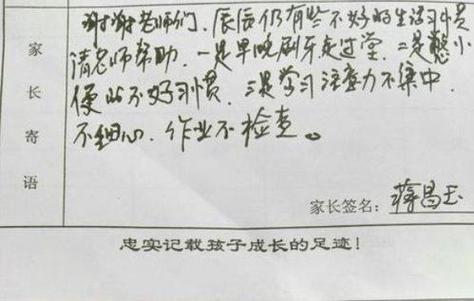 谢谢老师们,辰辰仍有些不好的生活习惯
请老师帮助.一是早晚刷牙走过堂.二是憋小
便此不好习惯.三是学习注意力不集中.
不细心.作业不检查。
家长寄语
家长签名:蒋昌玉
忠实记载孩子成长的足迹!